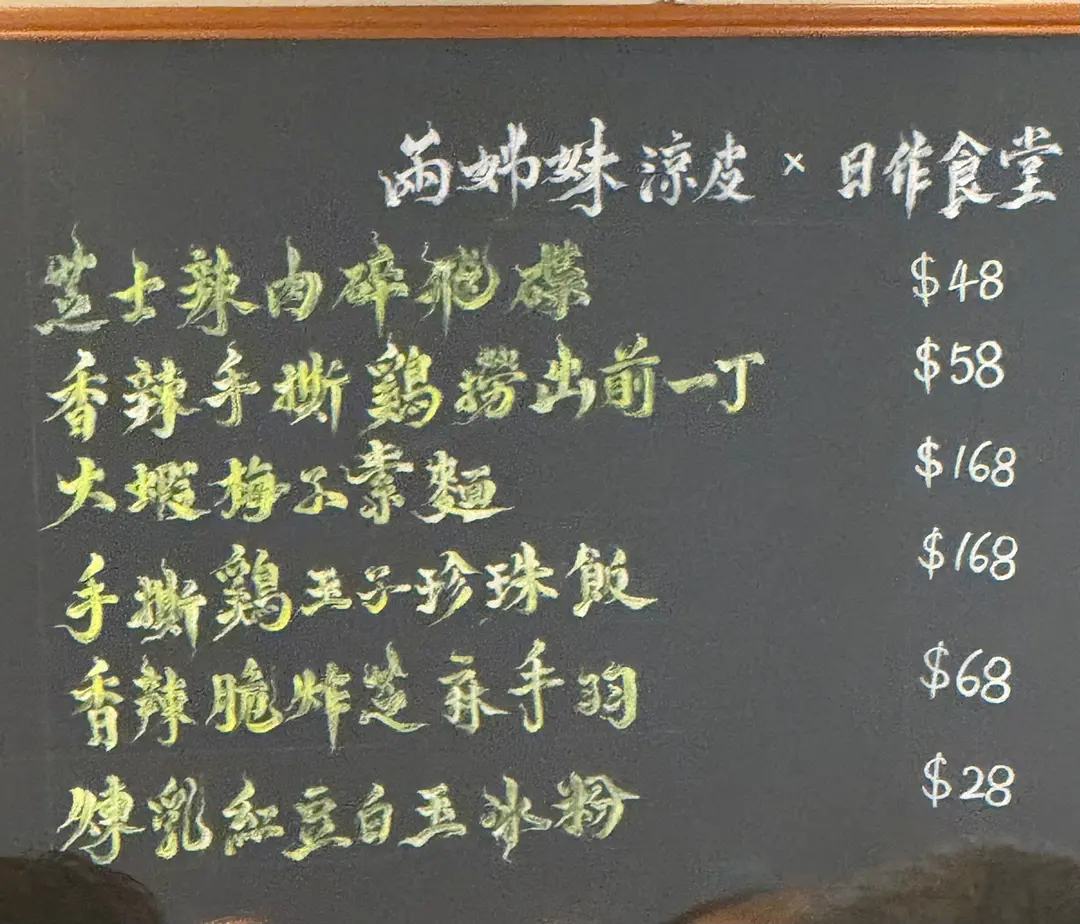 兩姊妹涼皮 × 日作食堂
芝士辣肉碎飛碟 $48
香辣手撕鷄撈出前一丁 $58
大蝦梅子素麵 $168
手撕鷄玉子珍珠飯 $168
香辣脆炸芝麻手羽 $68
煉乳紅豆白玉冰粉 $28